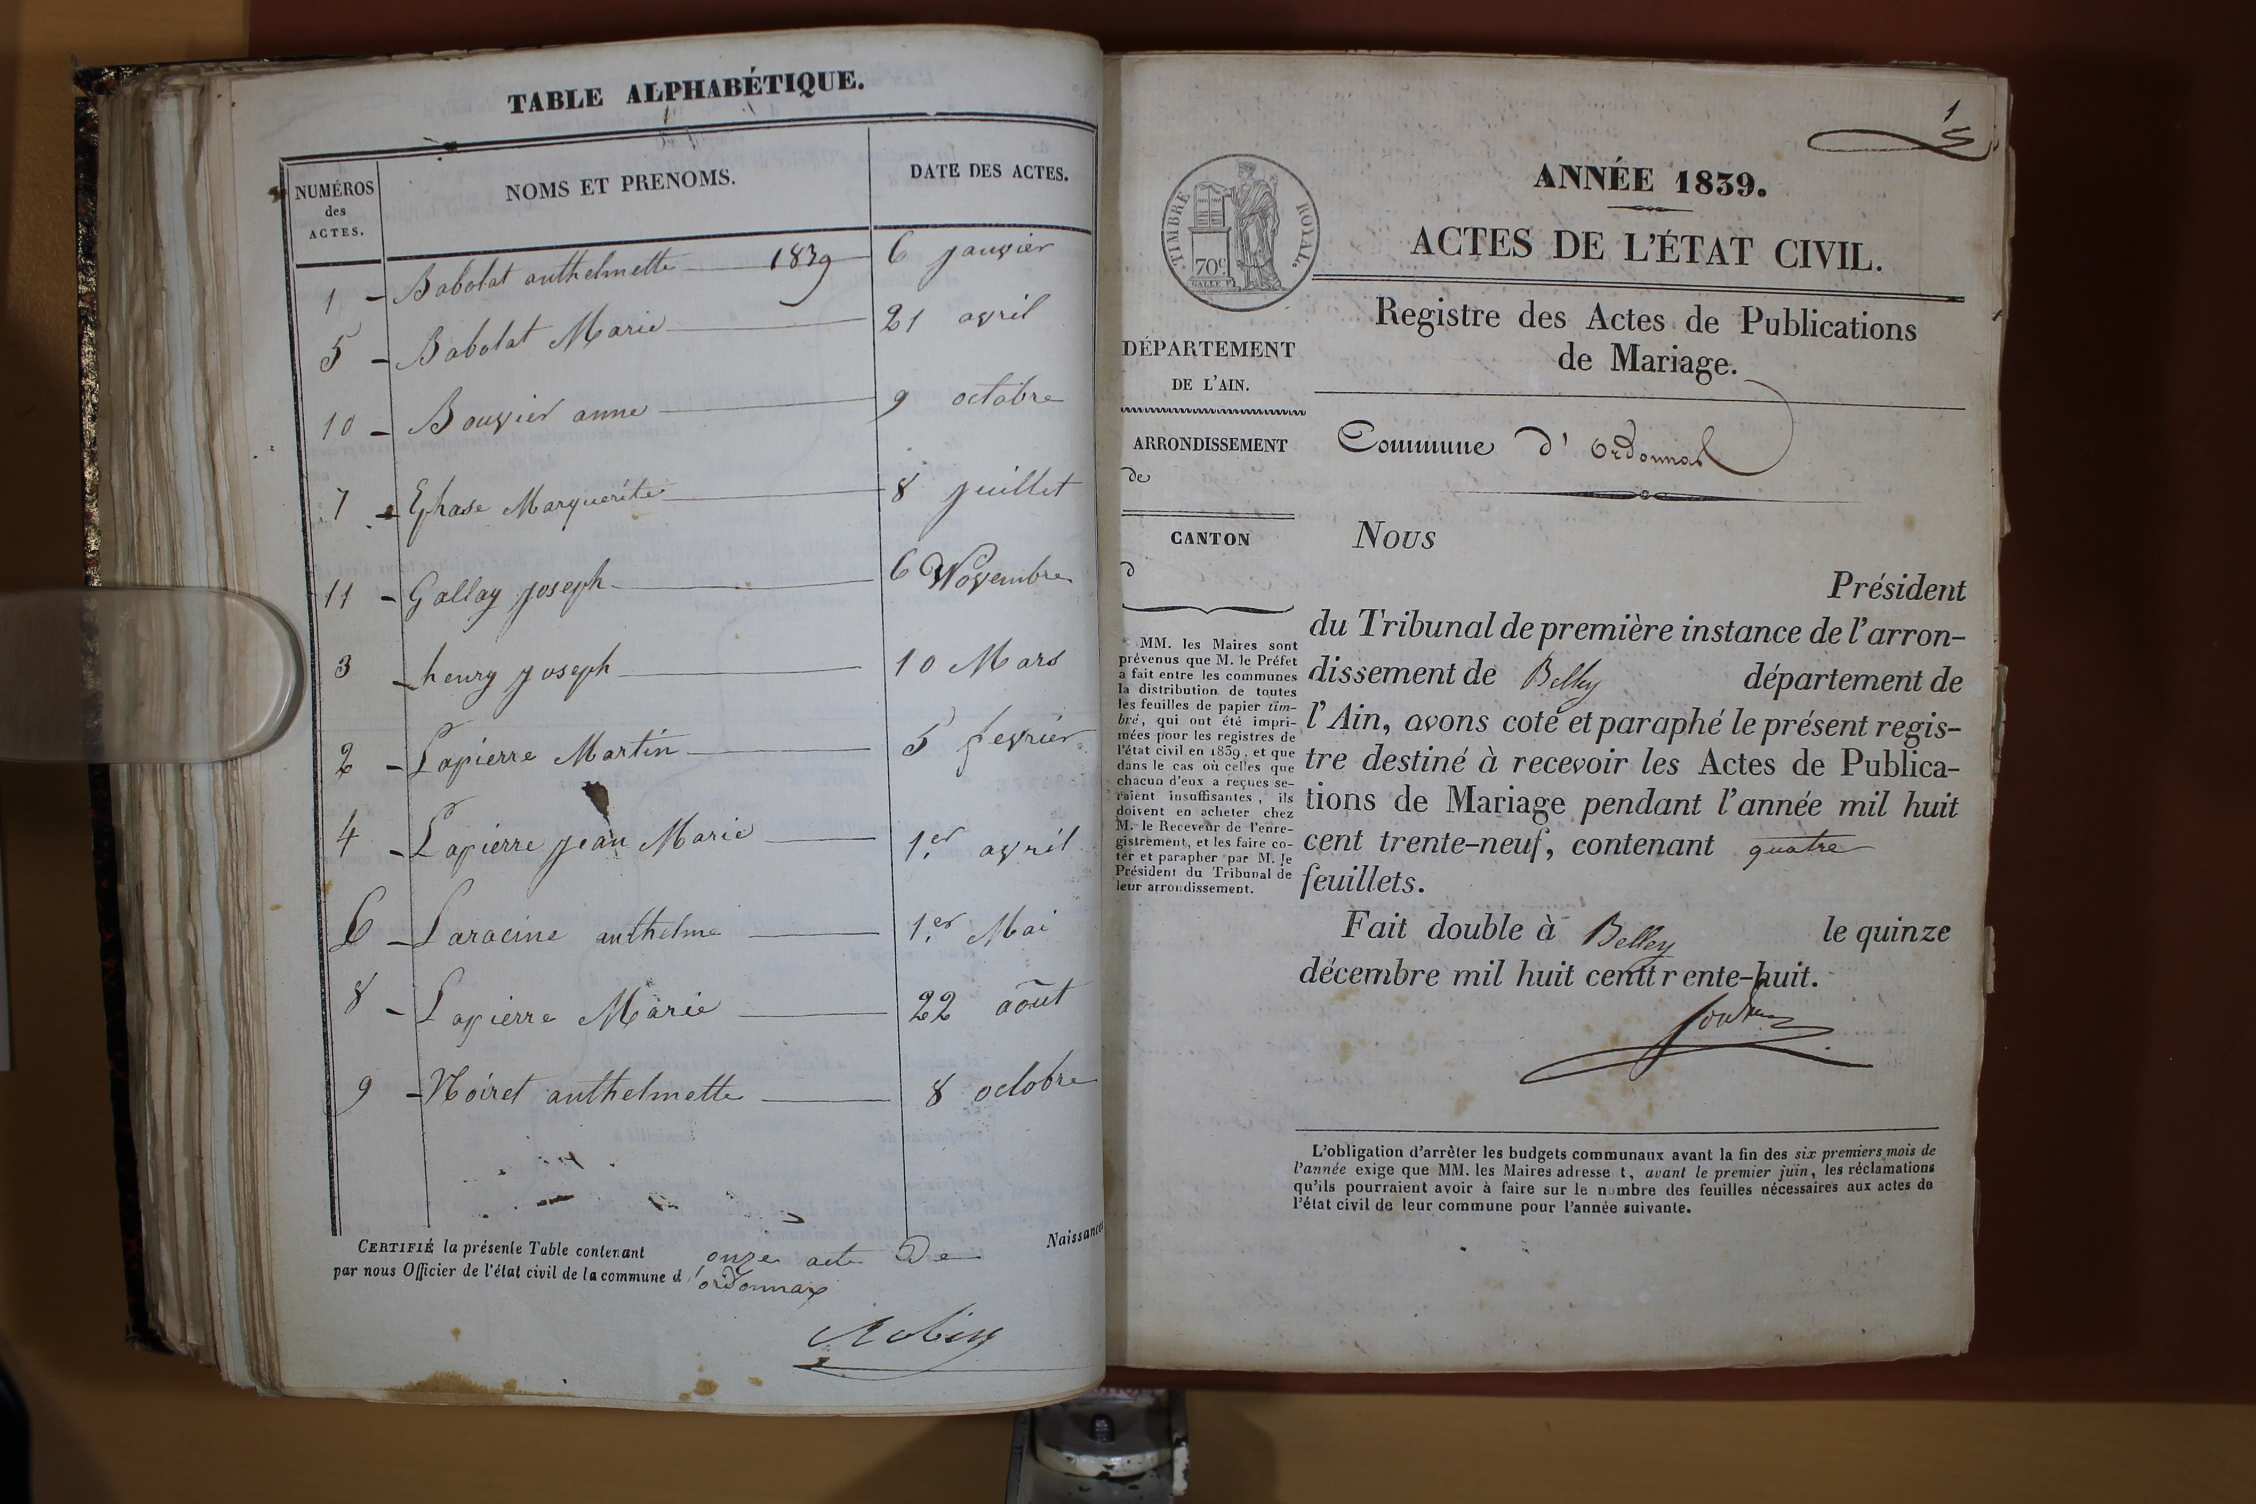 TABLE ALPHABÉTIQUE.
NUMÉROS des ACTES.
NOMS ET PRENOMS.
DATE DES ACTES.
1 - Babolat anthelmette 1839 6 janvier
5 - Babolat Marie 21 avril
10 - Bouvier anne 9 octobre
7 - Ephase Marguerite 8 juillet
11 - Gallay joseph 6 Novembre
3 - henry joseph 10 Mars
2 - Lapierre Martin 5 fevrier
4 - Lapierre jean Marie 1.er avril
6 - Laracine anthelme 1.er Mai
8 - Lapierre Marie 22 août
9 - Noiret anthelmette 8 octobre
CERTIFIÉ la présente Table contenant onze acte De Naissances
par nous Officier de l'état civil de la commune d'ordonnax
Robin
1
ANNÉE 1839.
ACTES DE L'ÉTAT CIVIL.
Registre des Actes de Publications
de Mariage.
TIMBRE ROYAL.
70c
GALLE F.
DÉPARTEMENT
DE L'AIN.
ARRONDISSEMENT
de
CANTON
d
MM. les Maires sont
prévenus que M. le Préfet
a fait entre les communes
la distribution de toutes
les feuilles de papier tim-
bré, qui ont été impri-
mées pour les registres de
l'état civil en 1839, et que
dans le cas où celles que
chacun d'eux a reçues se-
raient insuffisantes, ils
doivent en acheter chez
M. le Receveur de l'enre-
gistrement, et les faire co-
ter et parapher par M. le
Président du Tribunal de
leur arrondissement.
Commune d'Ordonnax
Nous
Président
du Tribunal de première instance de l'arron-
dissement de Belley département de
l'Ain, avons coté et paraphé le présent regis-
tre destiné à recevoir les Actes de Publica-
tions de Mariage pendant l'année mil huit
cent trente-neuf, contenant quatre
feuillets.
Fait double à Belley le quinze
décembre mil huit centtrente-huit.
L'obligation d'arrêter les budgets communaux avant la fin des six premiers mois de
l'année exige que MM. les Maires adresse t, avant le premier juin, les réclamations
qu'ils pourraient avoir à faire sur le nombre des feuilles nécessaires aux actes de
l'état civil de leur commune pour l'année suivante.